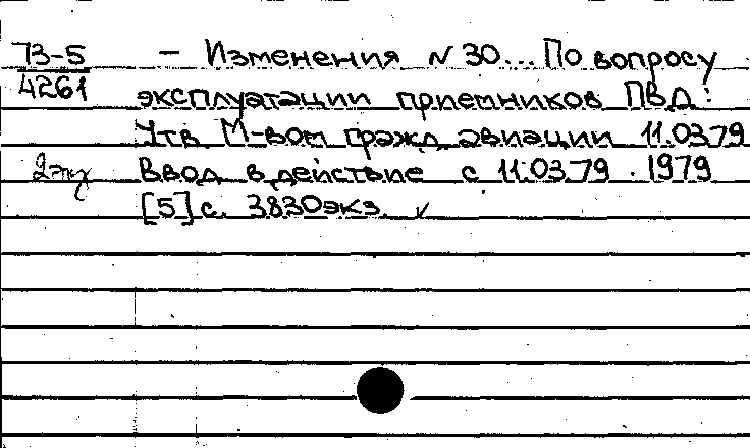 73-5 — Изменения N 30... По вопросу
4261 эксплуатации приемников ПВД:
Утв М-вом гражд авиации 11.03.79
2экз Ввод в действие с 11.03.79. 1979
[5] с. 3830экз. ✓